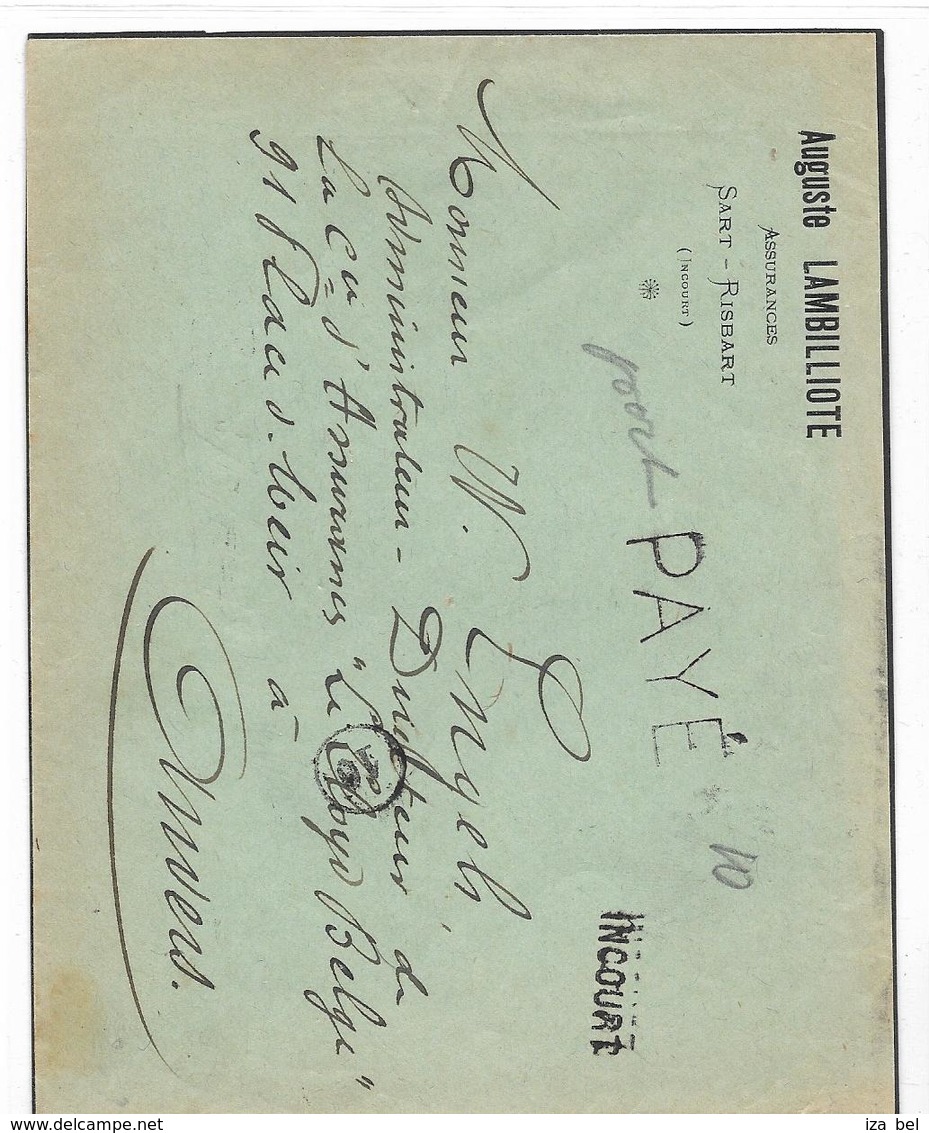 Auguste LAMBILLIOTE
ASSURANCES
SART-RISBART
(INCOURT)
port PAYÉ 10
INCOURT
Monsieur W. Engels,
Administrateur-Directeur de
La Cie d'Assurances "Le Lloyd Belge"
91 place d. Meir à
Anvers.
iza bel